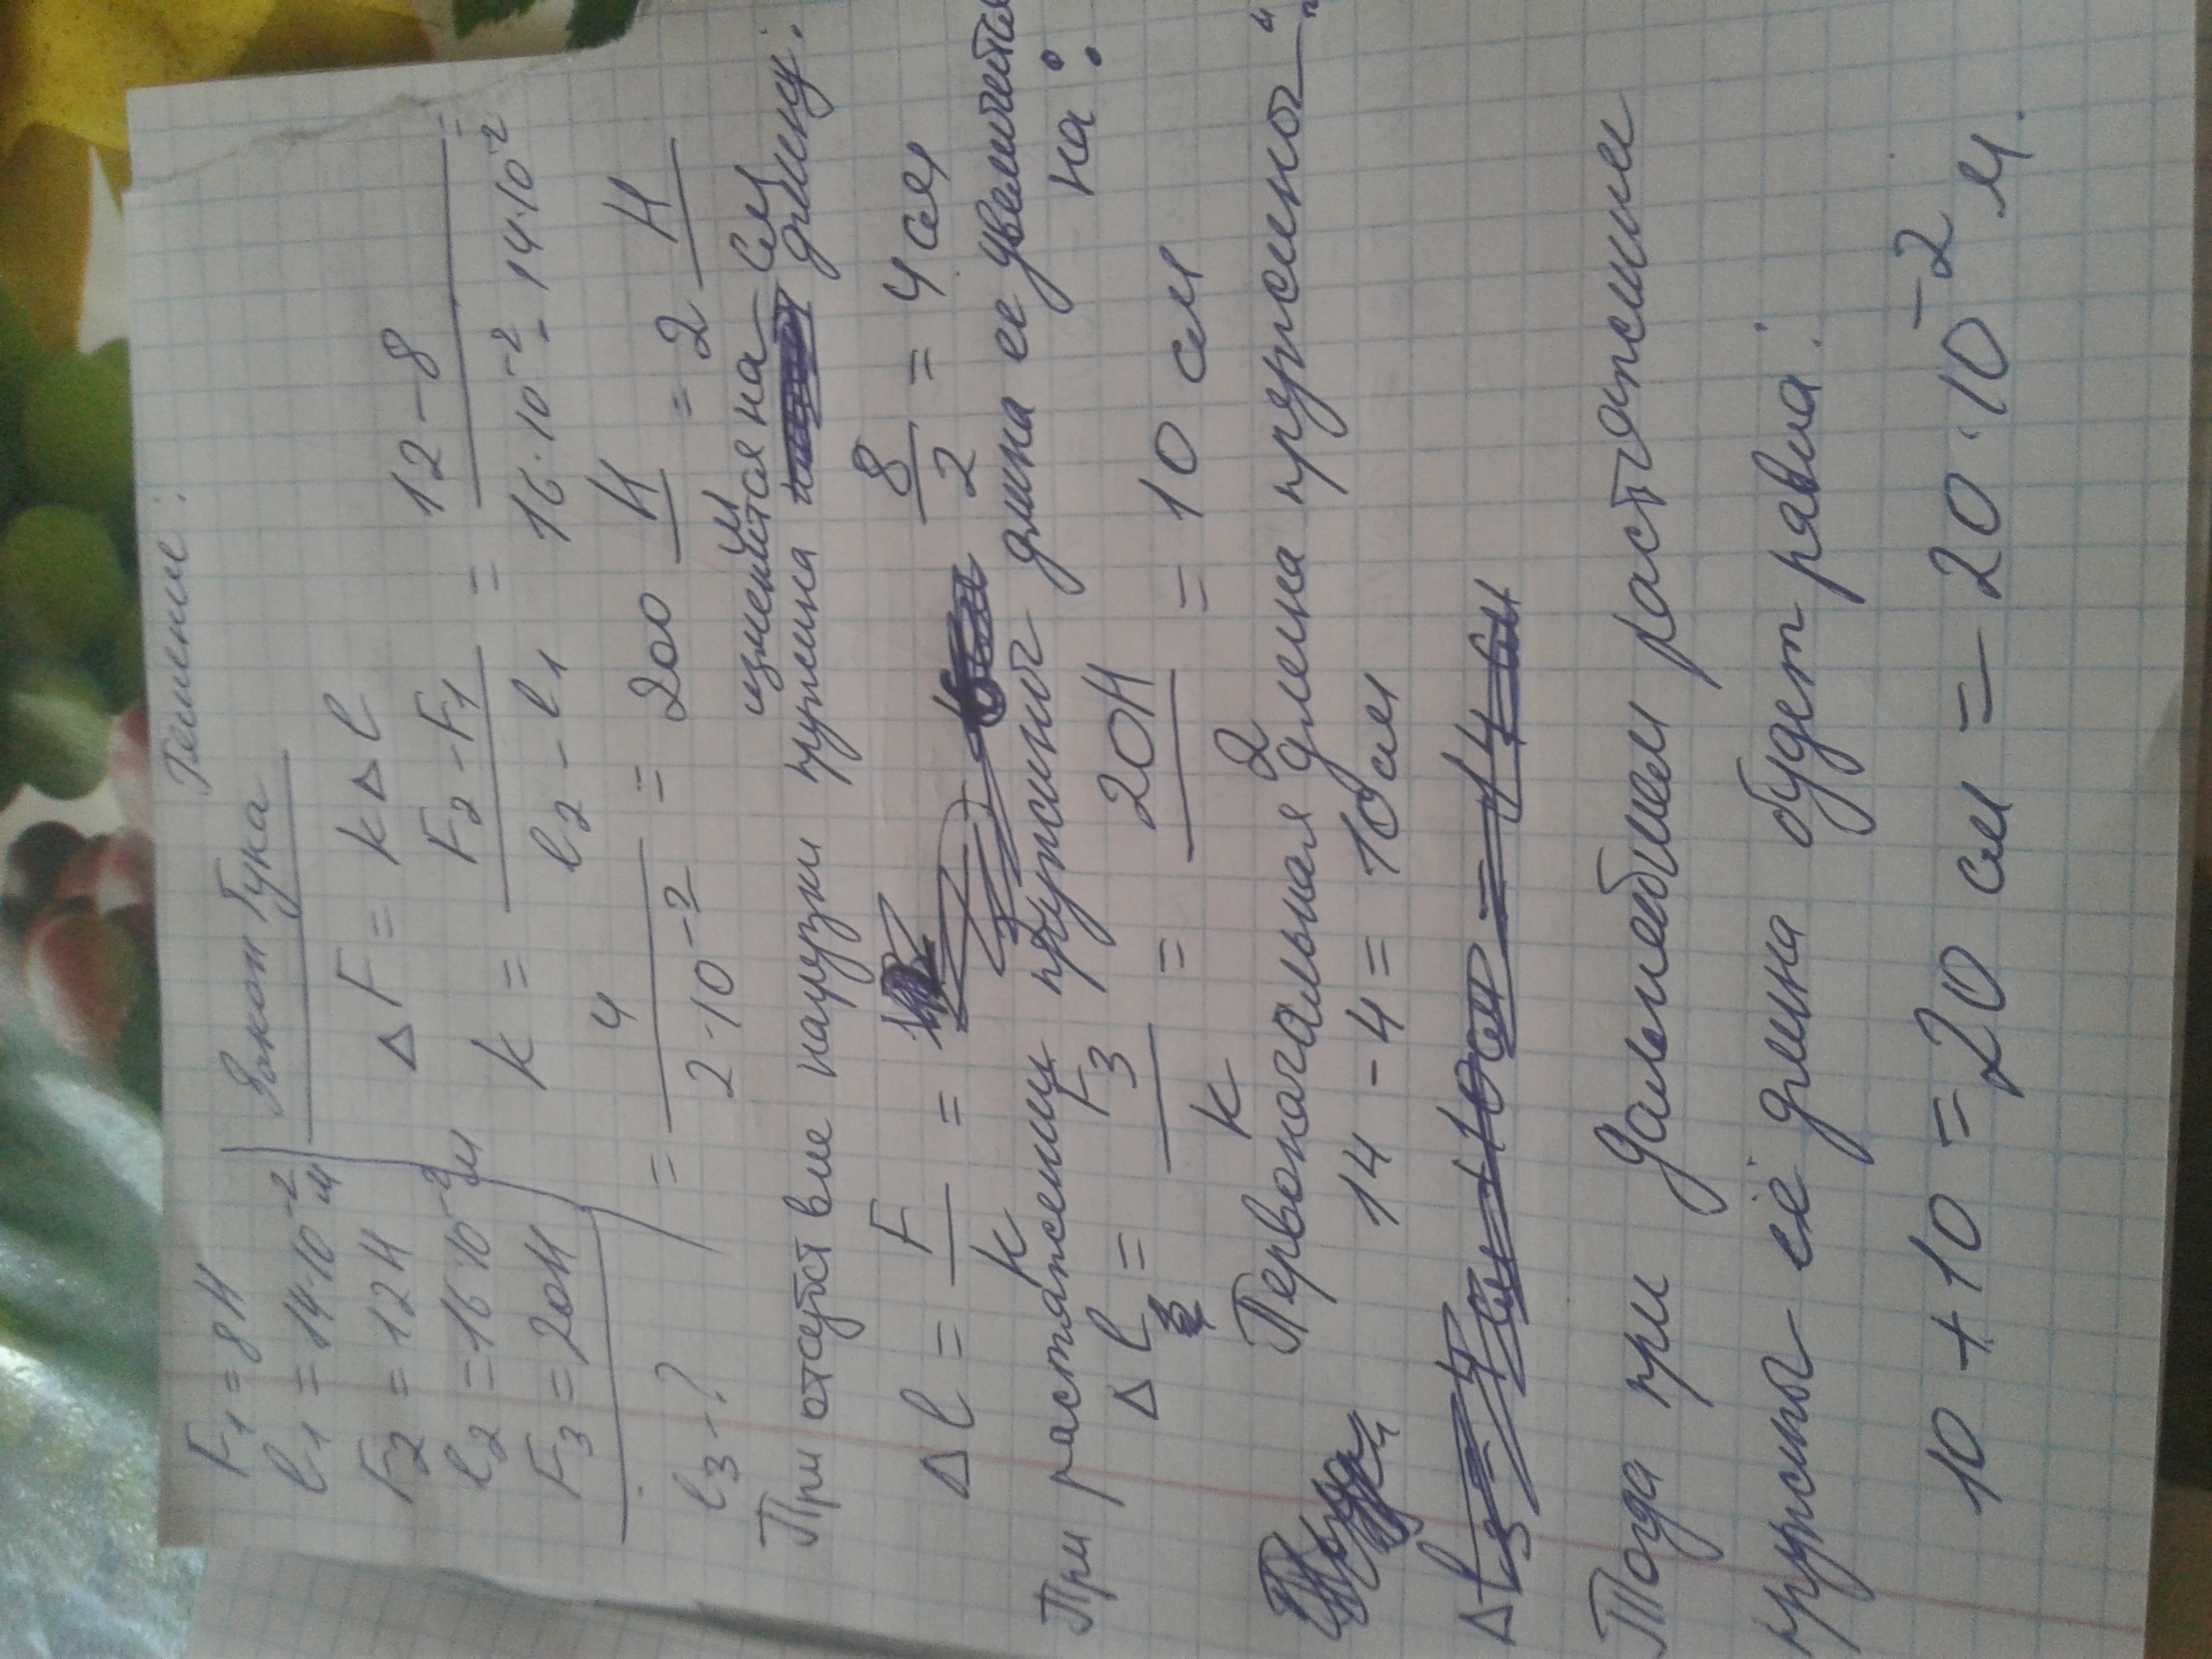 Решение:
F1 = 8Н
l1 = 14·10⁻² м
F2 = 12Н
l2 = 16·10⁻² м
F3 = 20Н
l3 - ?
Закон Гука
ΔF = kΔl
k = F2 - F1 / l2 - l1 = 12 - 8 / 16·10⁻² - 14·10⁻² =
= 4 / 2·10⁻² = 200 Н/м = 2 Н/см
изменится на
При отсутствие нагрузки пружина длину:
Δl = F/k = 8/2 = 4 см
При растяжении пружиной длина ее увеличится
на:
Δl = F3/k = 20Н/2 = 10 см
Первоначальная длина пружины
14 - 4 = 10 см
Δl3 = 4 см + 10 см = 14 см
Тогда при дальнейшем растяжении
пружины её длина будет равна:
10 + 10 = 20 см = 20·10⁻² м.